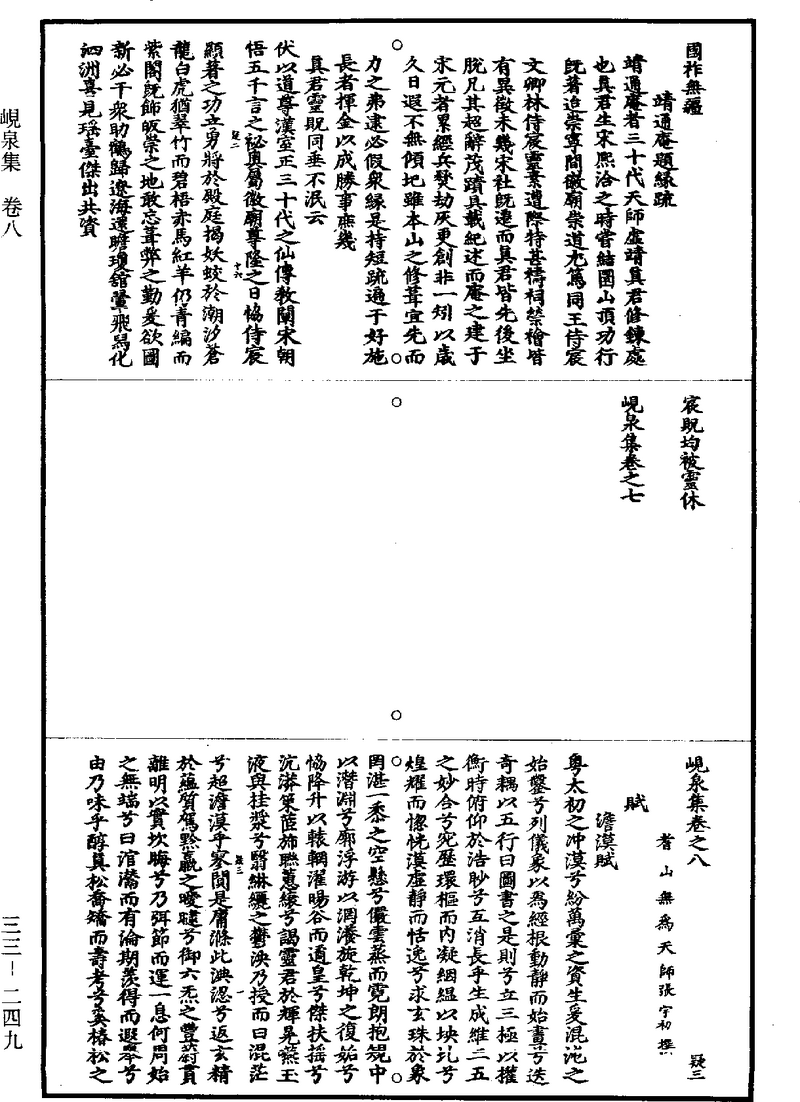 峴泉集　卷八
三三－二四九
國祚無疆
靖通庵題緣疏
靖通庵者三十代天師虛靖真君修鍊處
也真君生宋熙洽之時嘗結圜山頂功行
既著迨崇寧間徽廟崇道尤篤同王侍宸
文卿林侍宸靈素遭際特甚禱祠禜禬皆
有異徵未幾宋社既遷而真君皆先後坐
脫凡其超辭茂蹟具載紀述而庵之建于
宋元者累經兵燹劫灰更創非一矧以歲
久日遐不無傾圮雖本山之修葺宜先而
力之弗逮必假眾緣是持短疏遍干好施
長者揮金以成勝事庶幾
真君靈貺同垂不泯云
伏以道尊漢室正三十代之仙傳教闡宋朝
悟五千言之祕奧屬徽廟尊隆之日恊侍宸
顯著之功立勇將於殿庭揭妖蛟於潮汐蒼
龍白虎猶翠竹而碧梧赤馬紅羊仍青編而
紫閣既飾皈崇之地敢忘葺弊之勤爰欲圖
新必干衆助鶴歸遼海還瞻瓊舘翬飛舄化
泗洲喜見瑶臺傑出共資
疑二
十六
宸貺均被靈休
峴泉集卷之七
峴泉集卷之八
疑三
耆山無為天師張宇初撰
賦
澹漠賦
粤太初之冲漠兮紛萬彙之資生爰混沌之
始鑿兮列儀象以為經根動靜而始晝兮迭
奇耦以五行曰圖書之是則兮立三極以權
衡時俯仰於浩眇兮互消長乎生成維二五
之妙合兮宛歷環樞而內凝絪縕以坱圠兮
煌耀而惚恍漠虛靜而恬逸兮求玄珠於象
罔湛一黍之空懸兮儼雲蒸而霓朗抱規中
以潛淵兮廓浮游以溷瀁旋乾坤之復姤兮
恊降升以轅輞濯暘谷而遒皇兮傑扶揺兮
沆漭策茝旆聮蕙綏兮謁靈君於輝晃嚥玉
液與挂漿兮翳綝纚之欝泱乃授而曰混茫
兮超澹漠乎寥閴是庸滌此淟涊兮返玄精
於蘊質駕黙嬴之曖曃兮御六炁之豐蔚貫
離明以實坎晦兮乃弭節而運一息何周始
之無端兮曰涫瀹而有淪期羨得而遐睾兮
由乃味乎醇真松喬矯而壽考兮奚椿松之
疑三
一